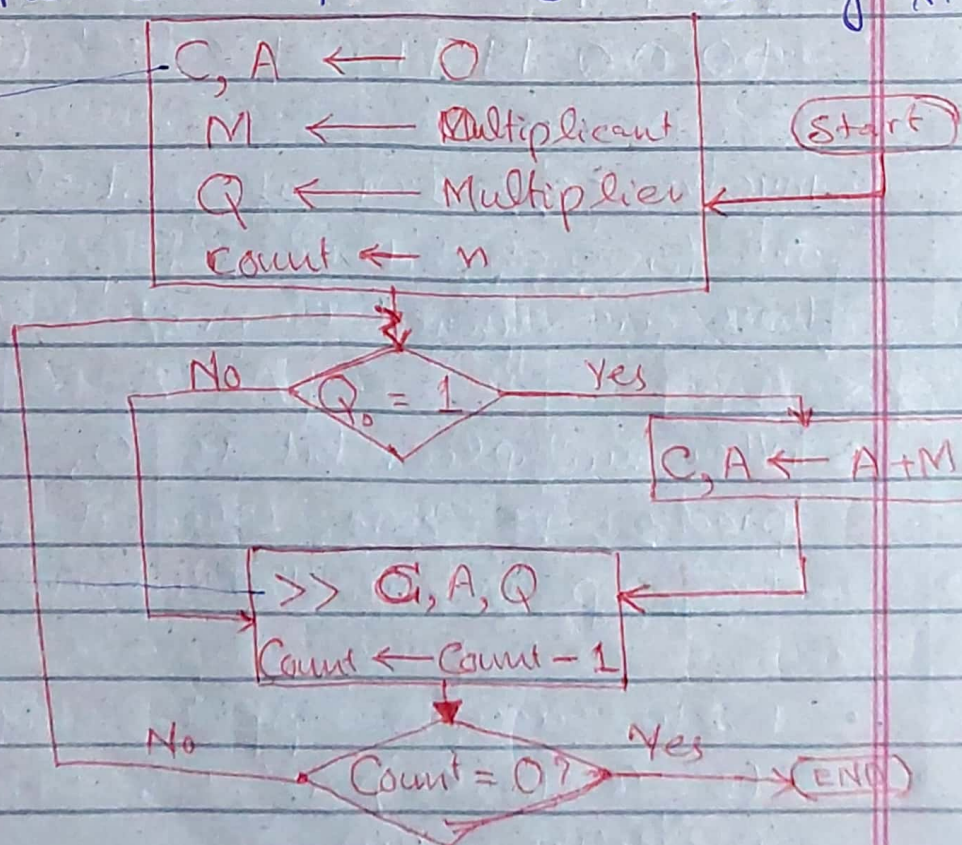 C, A ← O
M ← Multiplicant
Start
Q ← Multiplier
Count ← n
No
Q₀ = 1
Yes
C, A ← A + M
>> C, A, Q
Count ← Count - 1
No
Count = 0?
Yes
END